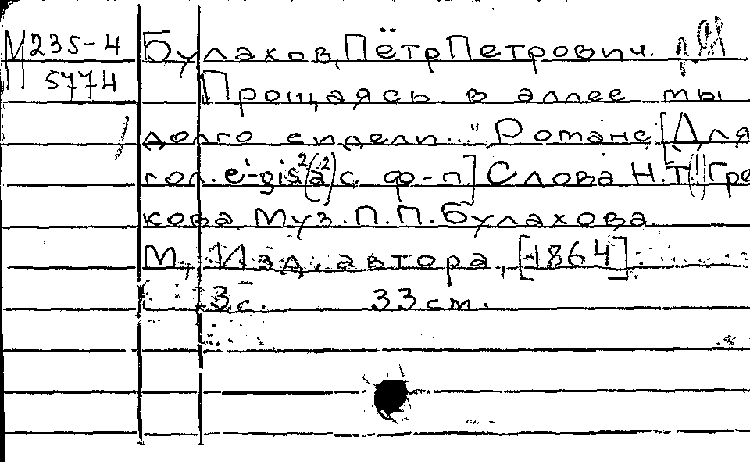 М 235-4 Булахов, Пётр Петрович.
5774 Прощаясь в аллее мы
долго сидели..." Романс [Для
гол. e'-gis²(a²) с ф-п] Слова Н. П. Гре
кова Муз. П. П. Булахова
М., Изд. автора, [1864].
3 с. 33 см.